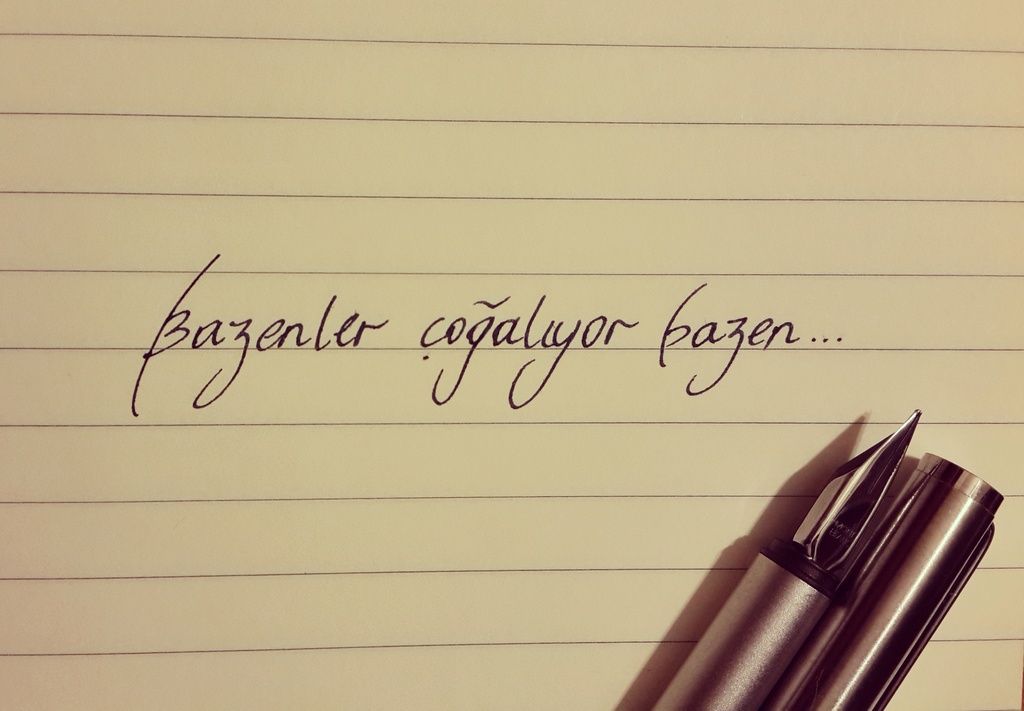 Bazenler çoğalıyor bazen...